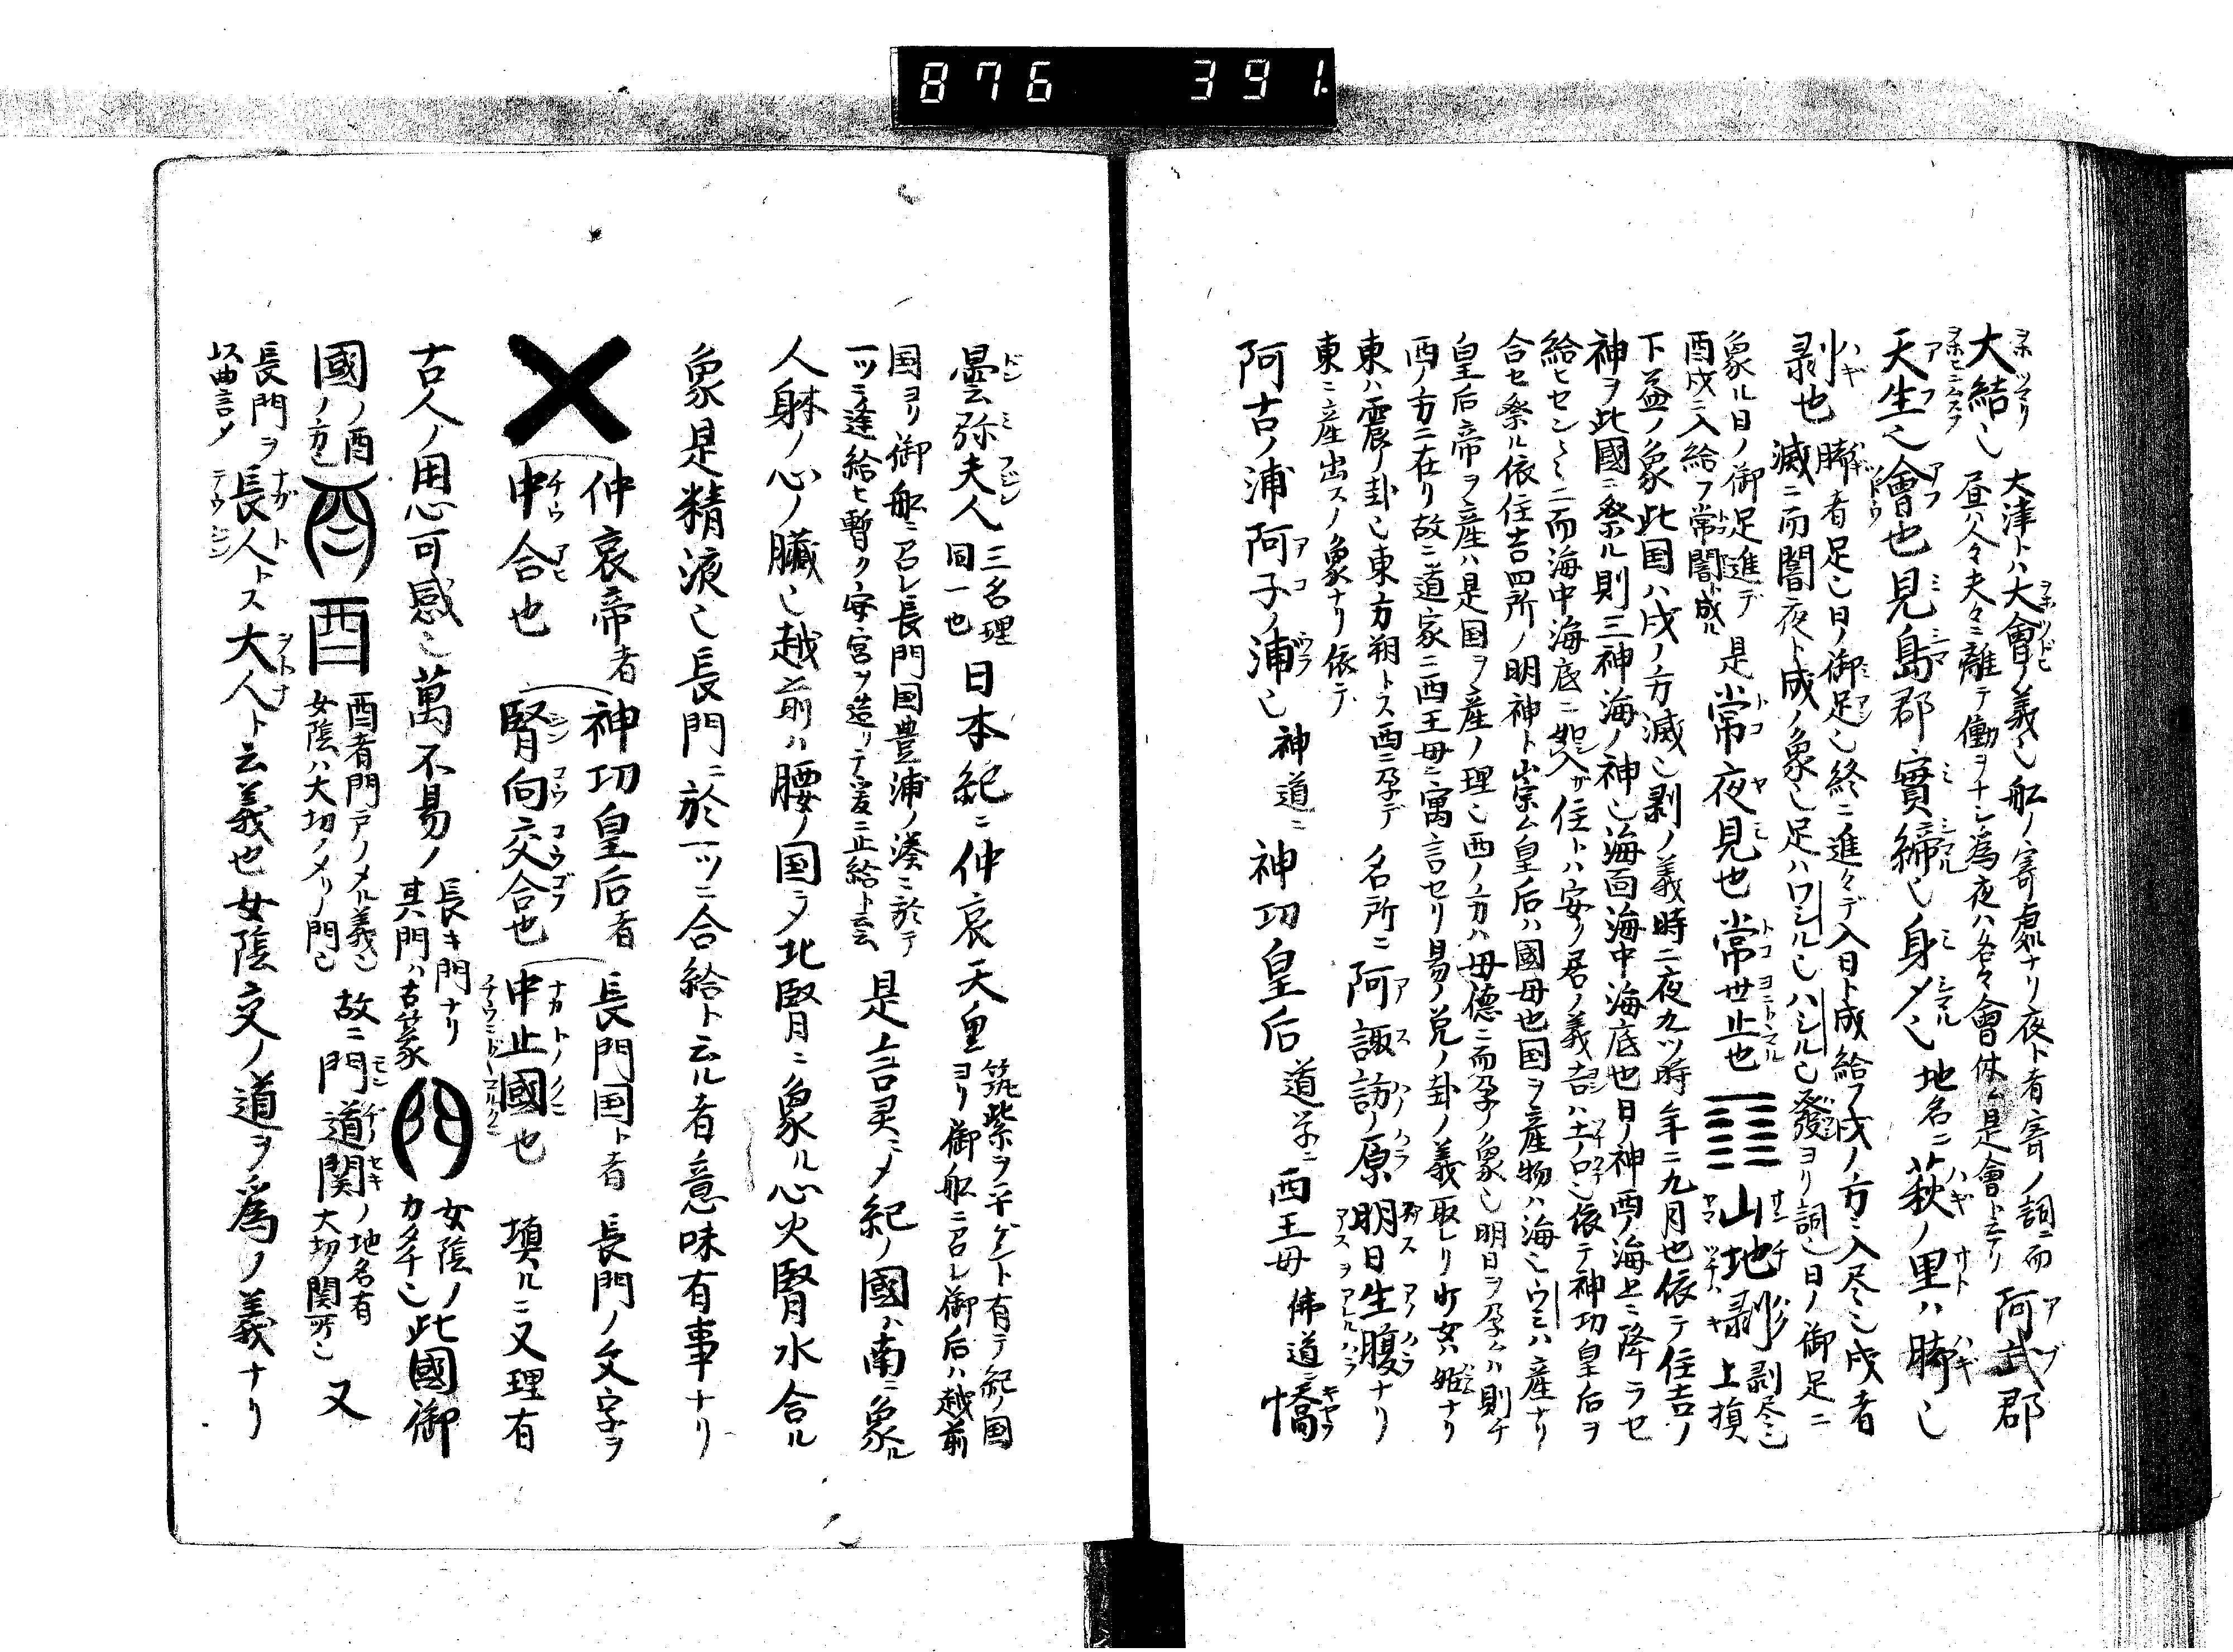 876 391.
大結也 大津トハ大會ノ義也舩ノ寄處ナリ夜ト者寄ノ詞ニ而 阿武郡
昼ハ人々夫々ニ離テ働ヲナシ為夜ハ各々會休ム是會ト云リ
天生也會也見島郡實締也身〆也地名ニ萩ノ里ハ脚也
剥也 脚者足也日ノ御足也終ニ進々デ入日ト成給フ戌ノ方ニ入尽也戌者
滅ニ而闇夜ト成ノ象也足ハワシル也ハシル也發ヨリ詞也日ノ御足ニ
象ル日ノ御足進デ 是常夜見也常世止也 ䷖ 山地剥 剥尽也
酉戌ニ入給フ常闇ト成ル 上損
下益ノ象此国ハ戌ノ方滅也剥ノ義時ニ夜九ツ時年ニ九月也依テ住吉ノ
神ヲ此國ニ祭ル則三神海ノ神也海面海中海底也日ノ神西ノ海上ニ降ラセ
給ヒセンミニ而海中海底ニ 入 住トハ安リ居ノ義吉ハ土口也依テ神功皇后ヲ
合セ祭ル依住吉四所ノ明神ト崇ム皇后ハ國母也国ヲ産物ハ海也ウミハ産ナリ
皇后帝ヲ産ハ是国ヲ産ノ理也西ノ方ハ母德ニ而孕ノ象也明日ヲ孕ムハ則チ
西ノ方ニ在リ故ニ道家ニ西王母ニ寓言セリ易ノ兌ノ卦ノ義取レリ少女ハ姫ナリ
東ハ震ノ卦也東方朔トス西ニ孕デ 名所ニ阿諏訪ノ原明日生腹ナリ
東ニ産出スノ象ナリ依テ
阿古ノ浦阿子ノ浦也 神道ニ神功皇后 道学ニ西王母 佛道ニ憍
曇弥夫人 三名理同一也 日本紀ニ仲哀天皇 筑紫ヲ平ゲント有テ紀ノ国
ヨリ御舩ニ召レ御后ハ越前
国ヨリ御舩ニ召レ長門国豊浦ノ湊ニ於テ
一ツニ逢給ヒ暫ク安宮ヲ造リテ爰ニ止給ト云云 是言灵ニ〆紀ノ國ハ南ニ象ル
人躰ノ心ノ臓也越前ハ腰ノ国ヲノ北腎ニ象ル心火腎水合ル
象是精液也長門ニ於一ツニ合給ト云ル者意味有事ナリ
仲哀帝者 神功皇后者 長門国ト者 長門ノ文字ヲ
中合也 腎向交合也 中止國也 填ルニ又理有
古人ノ用心可感也萬不易ノ 長キ門ナリ
其門ハ古篆 門 女陰ノ
カタチ也此國御
國ノ酉ノ方也 酉 酉 酉者門戸ノ〆ル義也
女陰ハ大切ノ〆リノ門也 故ニ門道関ノ地名有
大切ノ関所也 又
長門ヲ
以曲言〆 長人トス大人ト云義也女陰交ノ道ヲ為ノ義ナリ